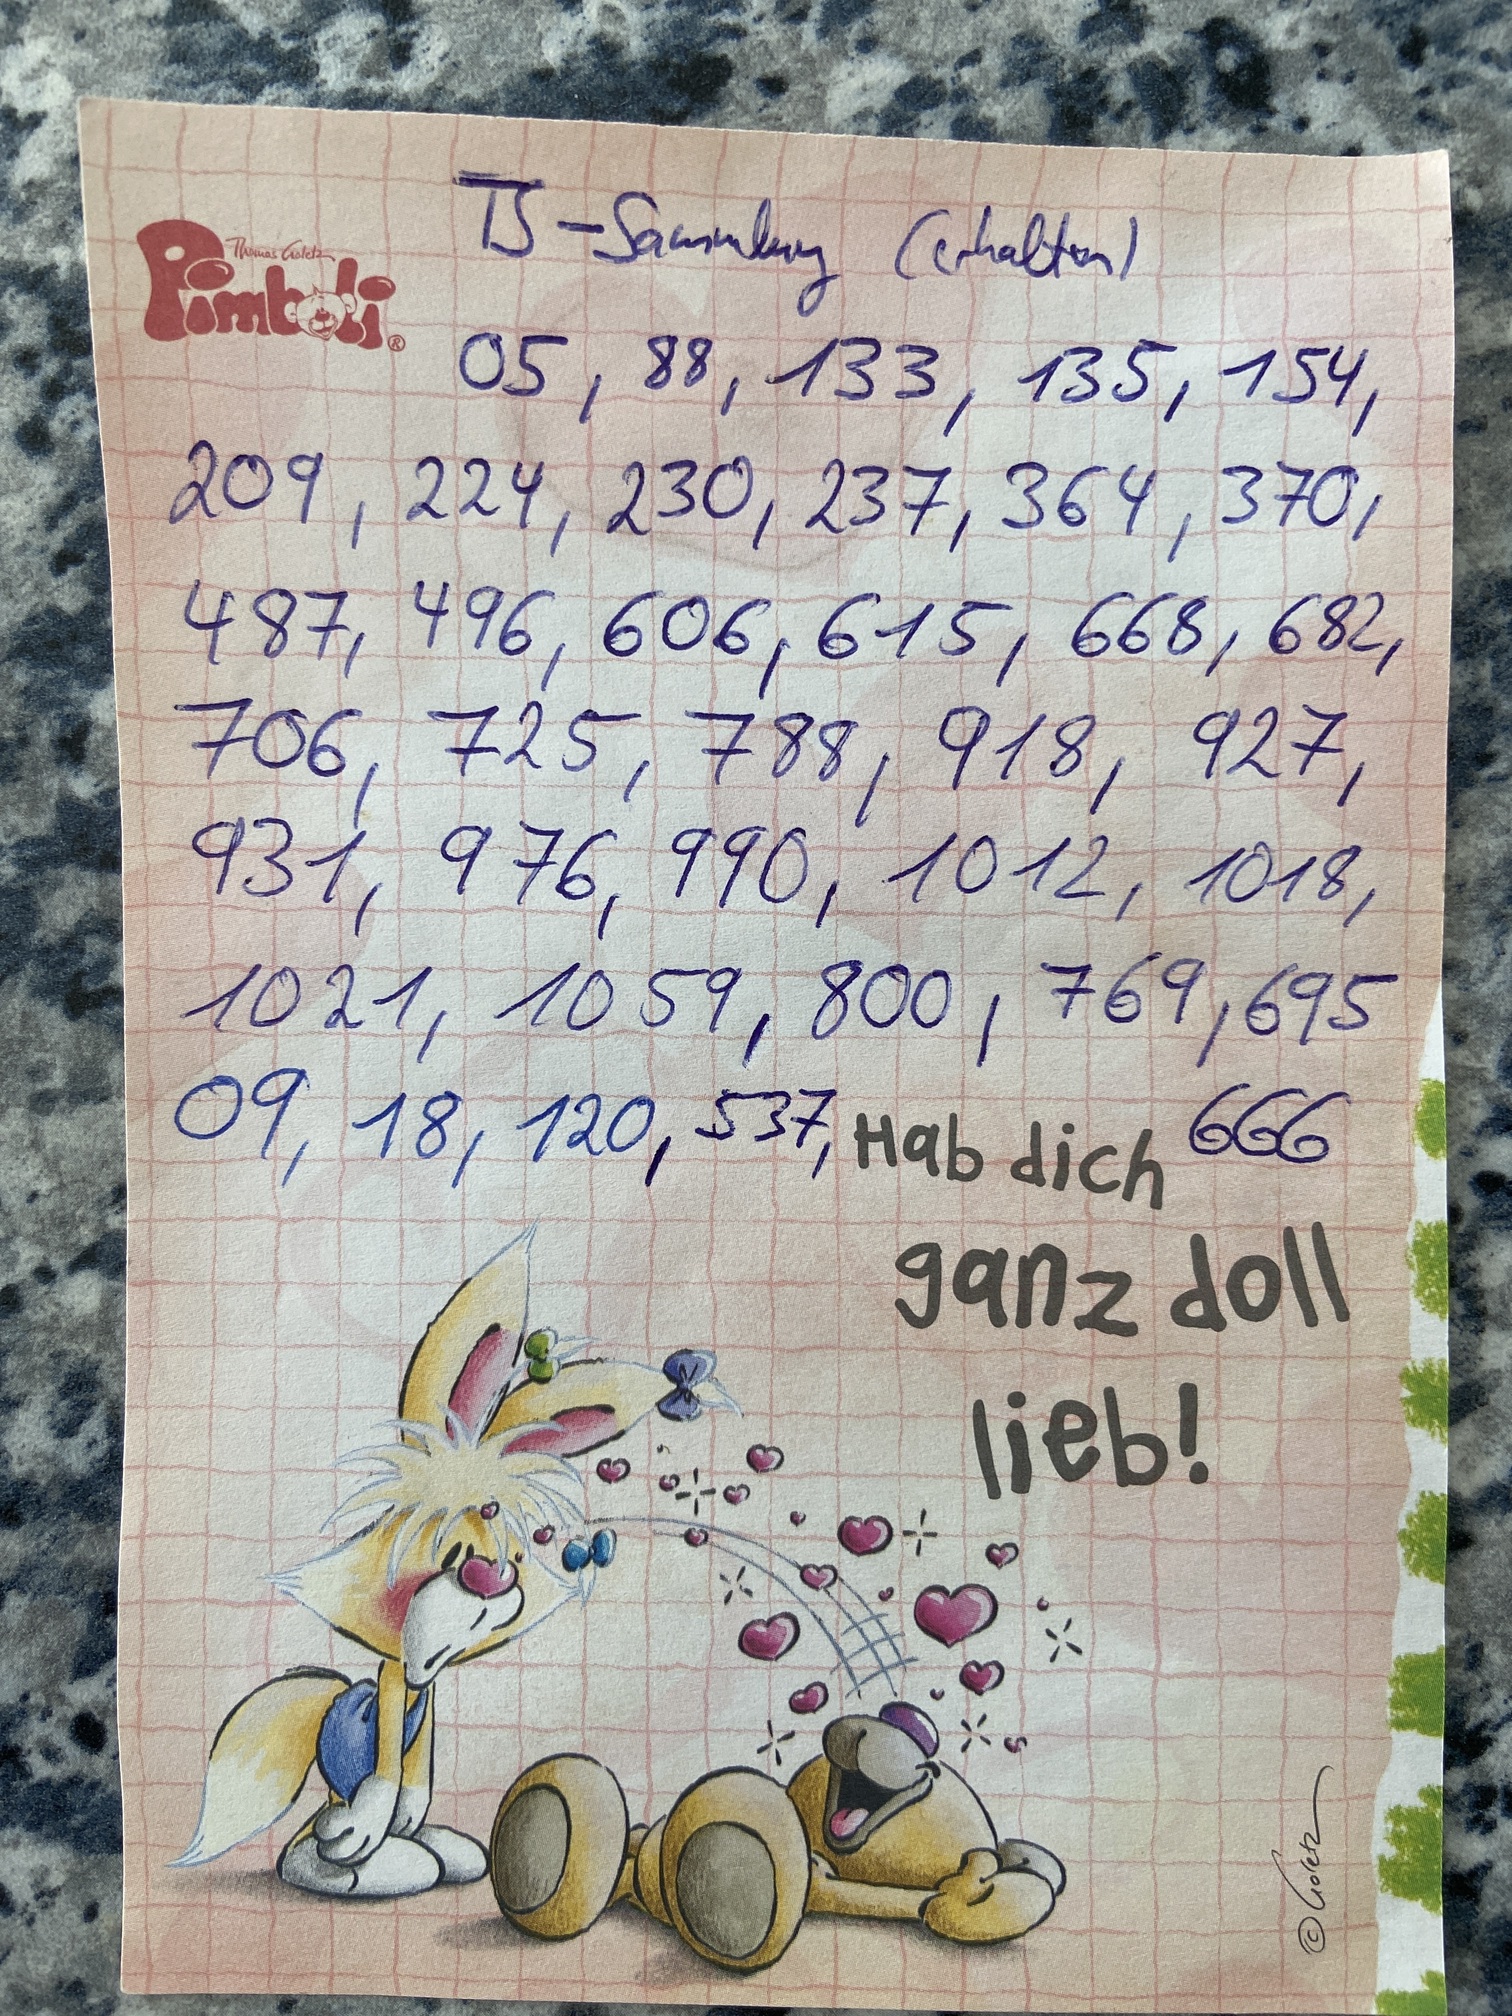 TS-Sammlung (erhalten)
Thomas Goletz
Pimboli®
05, 88, 133, 135, 154,
209, 224, 230, 237, 364, 370,
487, 496, 606, 615, 668, 682,
706, 725, 788, 918, 927,
931, 976, 990, 1012, 1018,
1021, 1059, 800, 769, 695
09, 18, 120, 537, 666
Hab dich
ganz doll
lieb!
© Goletz